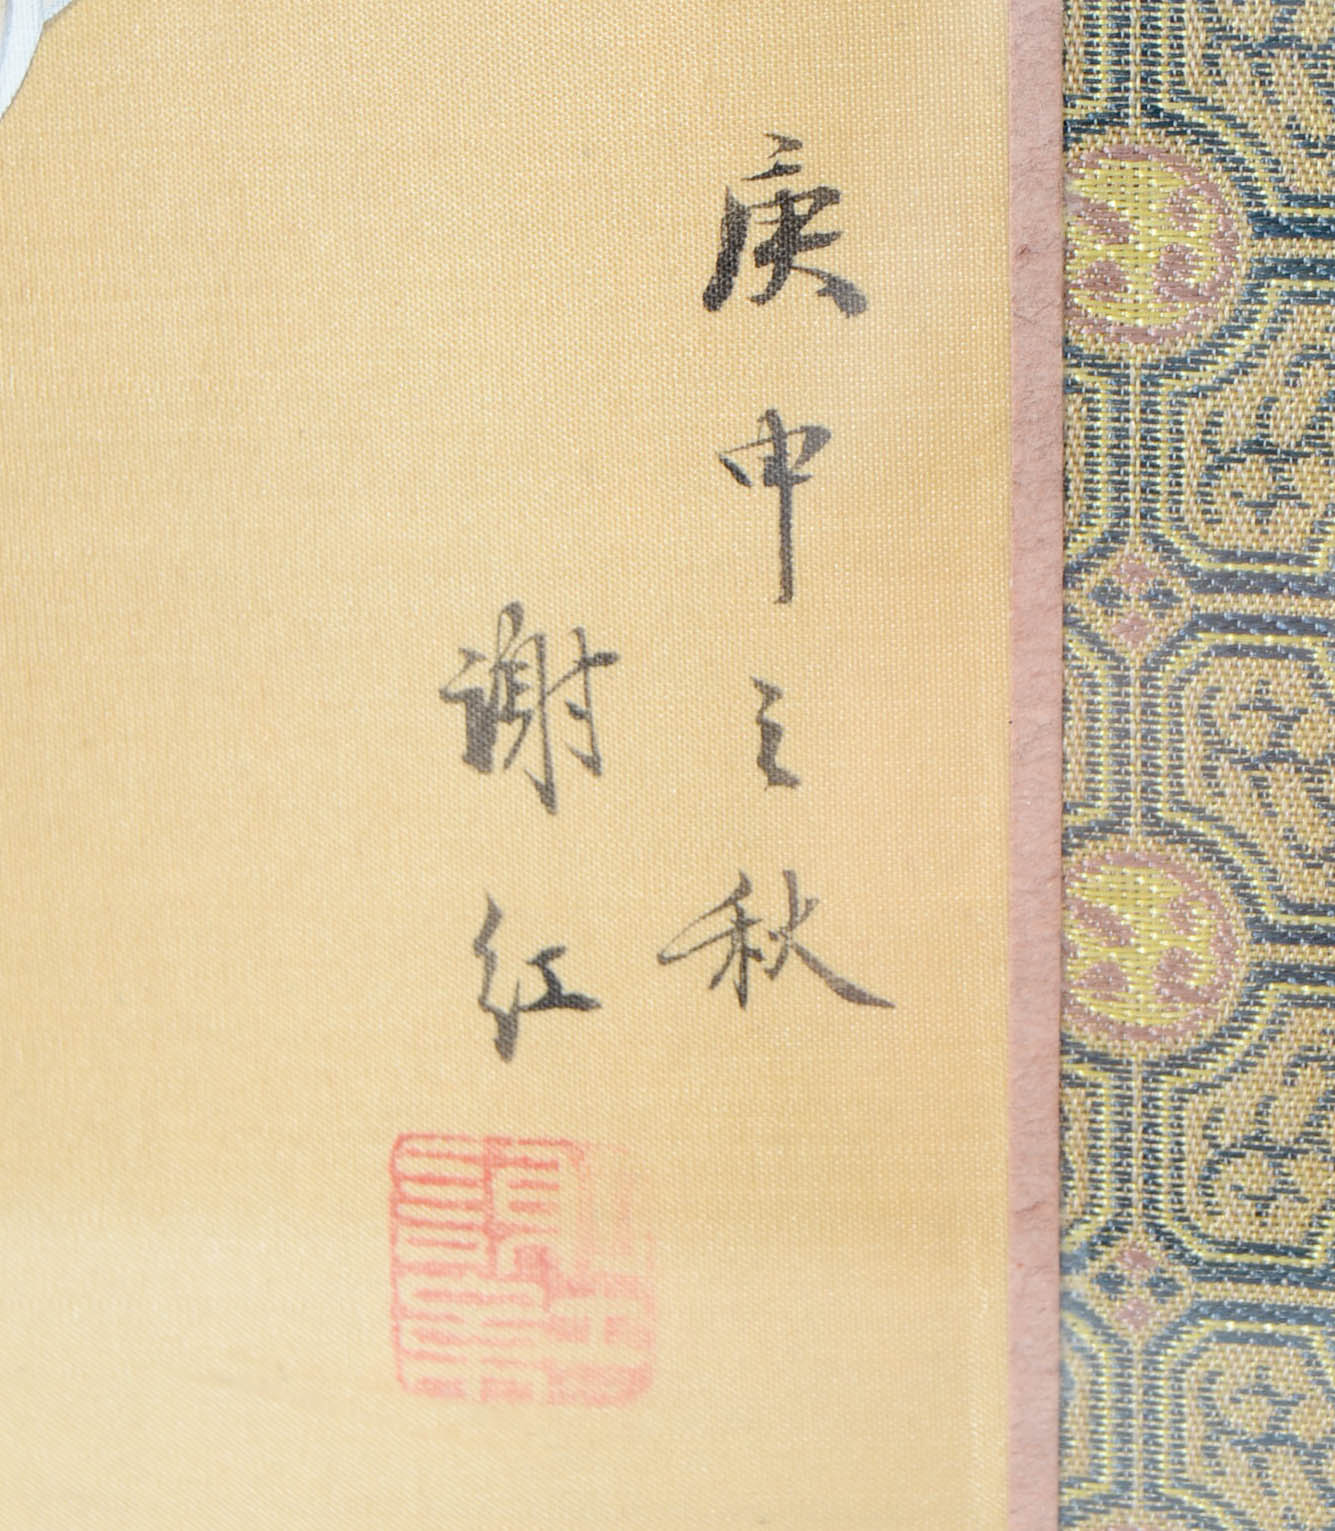 庚申之秋
谢红